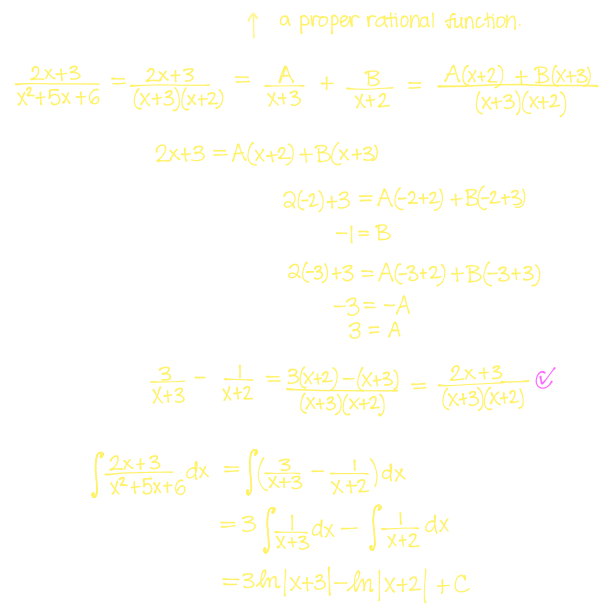 ↑ a proper rational function.
(2x+3)/(x²+5x+6) = (2x+3)/((x+3)(x+2)) = A/(x+3) + B/(x+2) = (A(x+2) + B(x+3))/((x+3)(x+2))
2x+3 = A(x+2) + B(x+3)
2(-2)+3 = A(-2+2) + B(-2+3)
-1 = B
2(-3)+3 = A(-3+2) + B(-3+3)
-3 = -A
3 = A
3/(x+3) - 1/(x+2) = (3(x+2) - (x+3))/((x+3)(x+2)) = (2x+3)/((x+3)(x+2)) ✓
∫ (2x+3)/(x²+5x+6) dx = ∫ (3/(x+3) - 1/(x+2)) dx
= 3 ∫ 1/(x+3) dx - ∫ 1/(x+2) dx
= 3 ln|x+3| - ln|x+2| + C